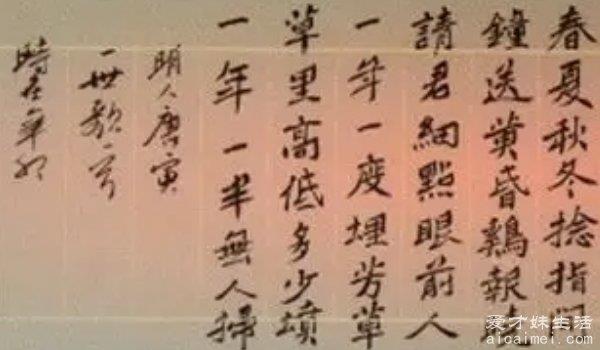 春夏秋冬捻指
鐘送黃昏鷄報
請君細點眼前人
一年一度埋芳草
草里高低多少墳
一年一半無人掃
明人唐寅
一世歌一
時在
爱才妹生活
aicaimei.com